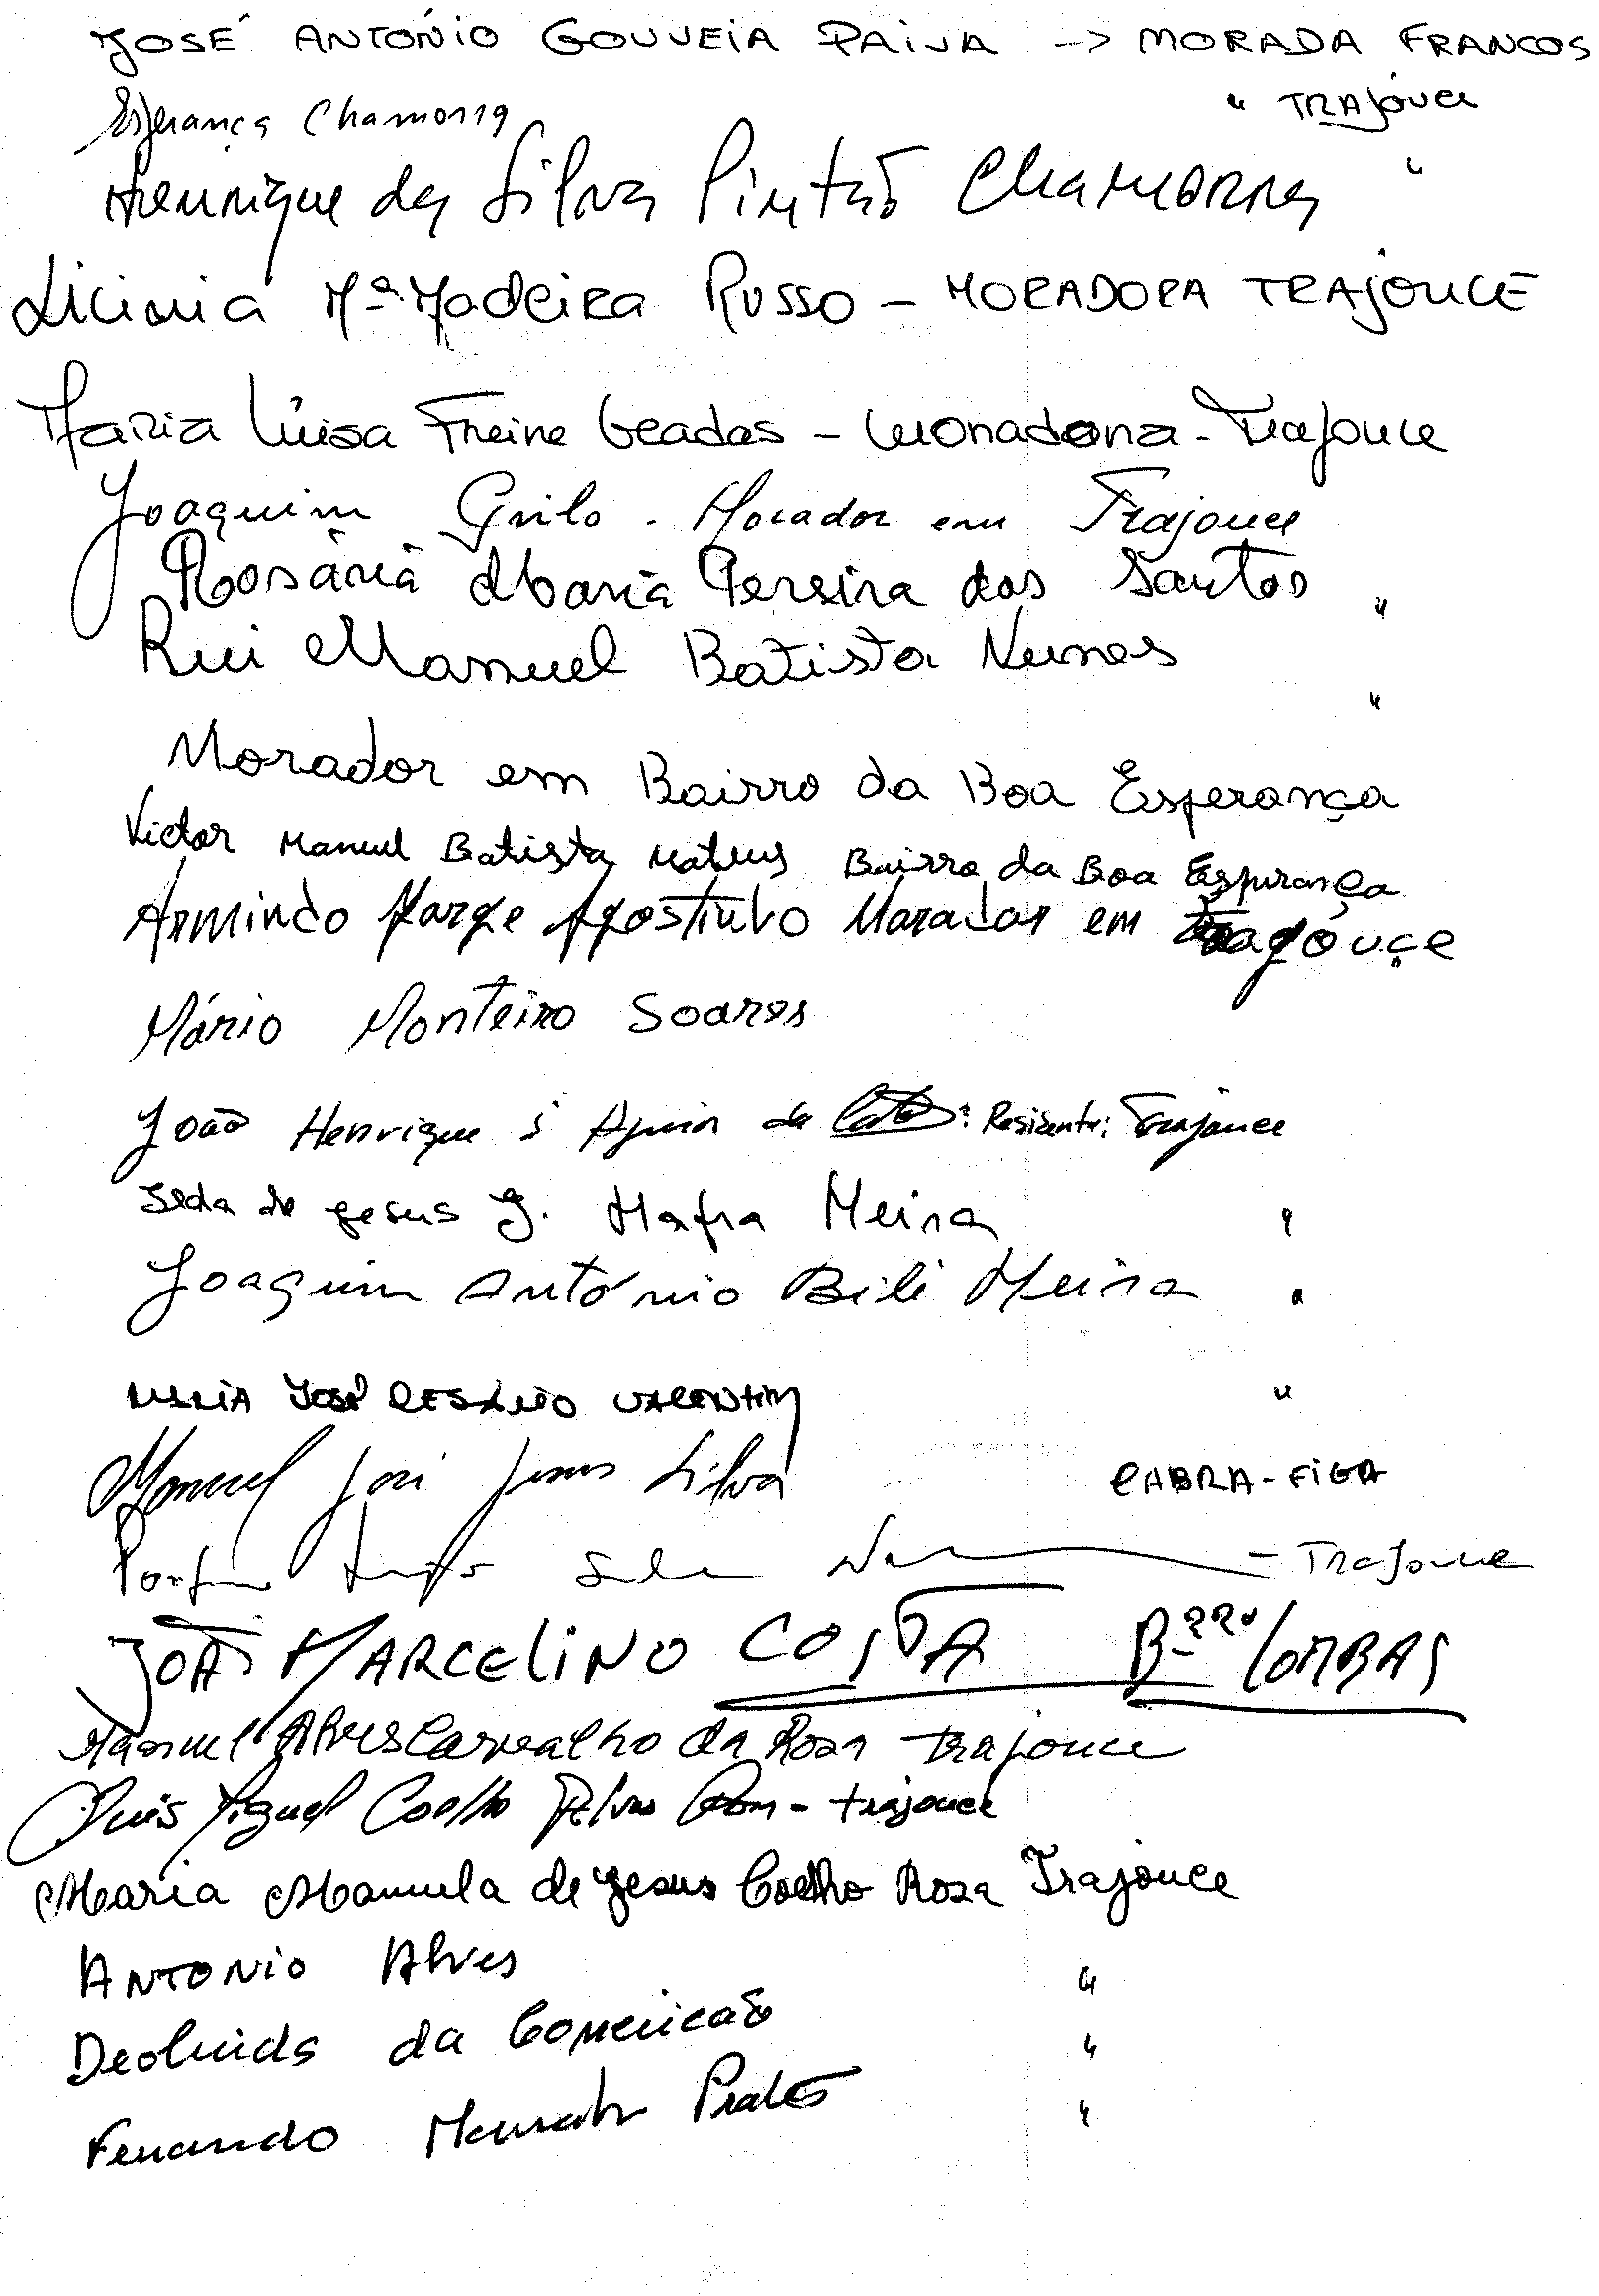 JOSÉ ANTÓNIO GOUVEIA PAIVA -> MORADA FRANCOS
Esperança Chamorra " TRAJOUCE
Henrique da Silva Pintão Chamorra "
Licinia Mª Madeira Russo - MORADORA TRAJOUCE
Maria Luisa Freire Geadas - moradora - Trajouce
Joaquim Grilo - Morador em Trajouce
Rosária Maria Pereira dos Santos "
Rui Manuel Batista Nunes "
Morador em Bairro da Boa Esperança
Victor Manuel Batista Mateus Bairro da Boa Esperança
Armindo Jorge Agostinho Morador em Trajouçe
Mário Monteiro Soares
João Henrique S Aguiar da Residente: Trajouce
Ilda de Jesus J. Mafra Meira "
Joaquim António Bili Meira "
MARIA JOSÉ ROSÁRIO VALENTIM "
Manuel José Jesus Silva CABRA-FIGA
- Trajouce
JOÃO MARCELINO COSTA B-rro LOMBAS
Manuel Alves Carvalho da Rosa trajouce
Luis Miguel Coelho Rosa - trajouce
Maria Manuela de Jesus Coelho Rosa Trajouce
ANTONIO Alves "
Deolinda da Conceicão "
Fernando Prates "